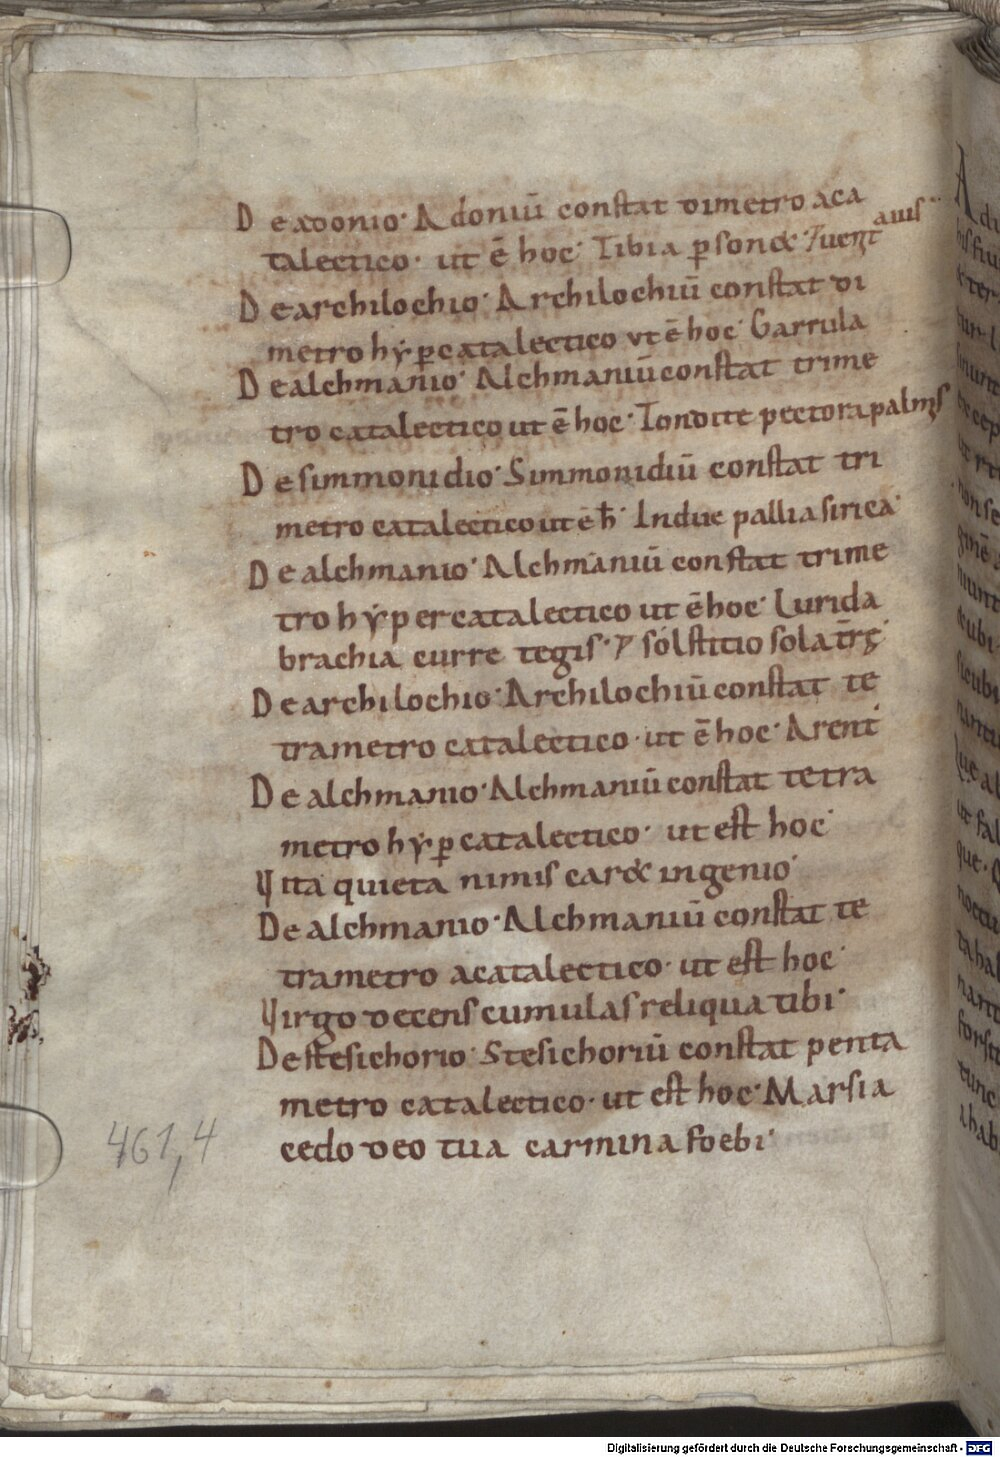 De adonio· Adoniū constat dimetro aca
talectico· ut ē hoc· Tibia ꝑson&· iuuentauis··
De archilochio· Archilochiū constat di
metro hẏꝑcatalectico ut ē hoc· Garrula
De alchmanio· Alchmaniū constat trime
tro catalectico ut ē hoc· Tondite pectora palmis
De simmonidio· Simmonidiū constat tri
metro catalectico ut ē ħ· Indue pallia sirica·
De alchmanio· Alchmaniū constat trime
tro hẏpercatalectico ut ē hoc· Lurida
brachia curre tegis· solstitio sola
De archilochio· Archilochiū constat te
trametro catalectico· ut ē hoc· Arent
De alchmanio· Alchmaniū constat tetra
metro hẏꝑcatalectico· ut est hoc·
Vita quieta nimis car& ingenio·
De alchmanio· Alchmaniū constat te
trametro acatalectico· ut est hoc·
Virgo decens cumulas reliqua tibi·
De stesichorio· Stesichoriū constat penta
metro catalectico· ut est hoc· Marsia
cedo deo tua carmina foebi·
461,4
Digitalisierung gefördert durch die Deutsche Forschungsgemeinschaft - DFG